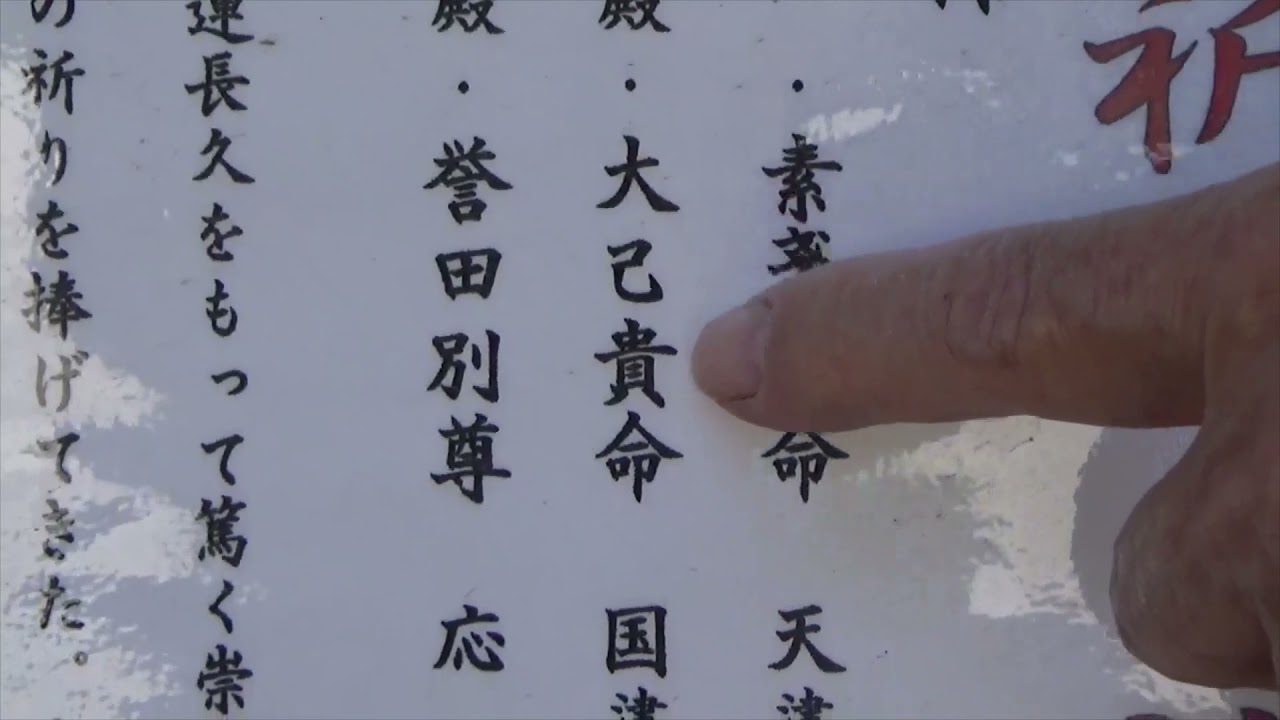 祈
・素戔命 天津
殿・大己貴命 国津
殿・誉田別尊 応
運長久をもって篤く崇
の祈りを捧げてきた。